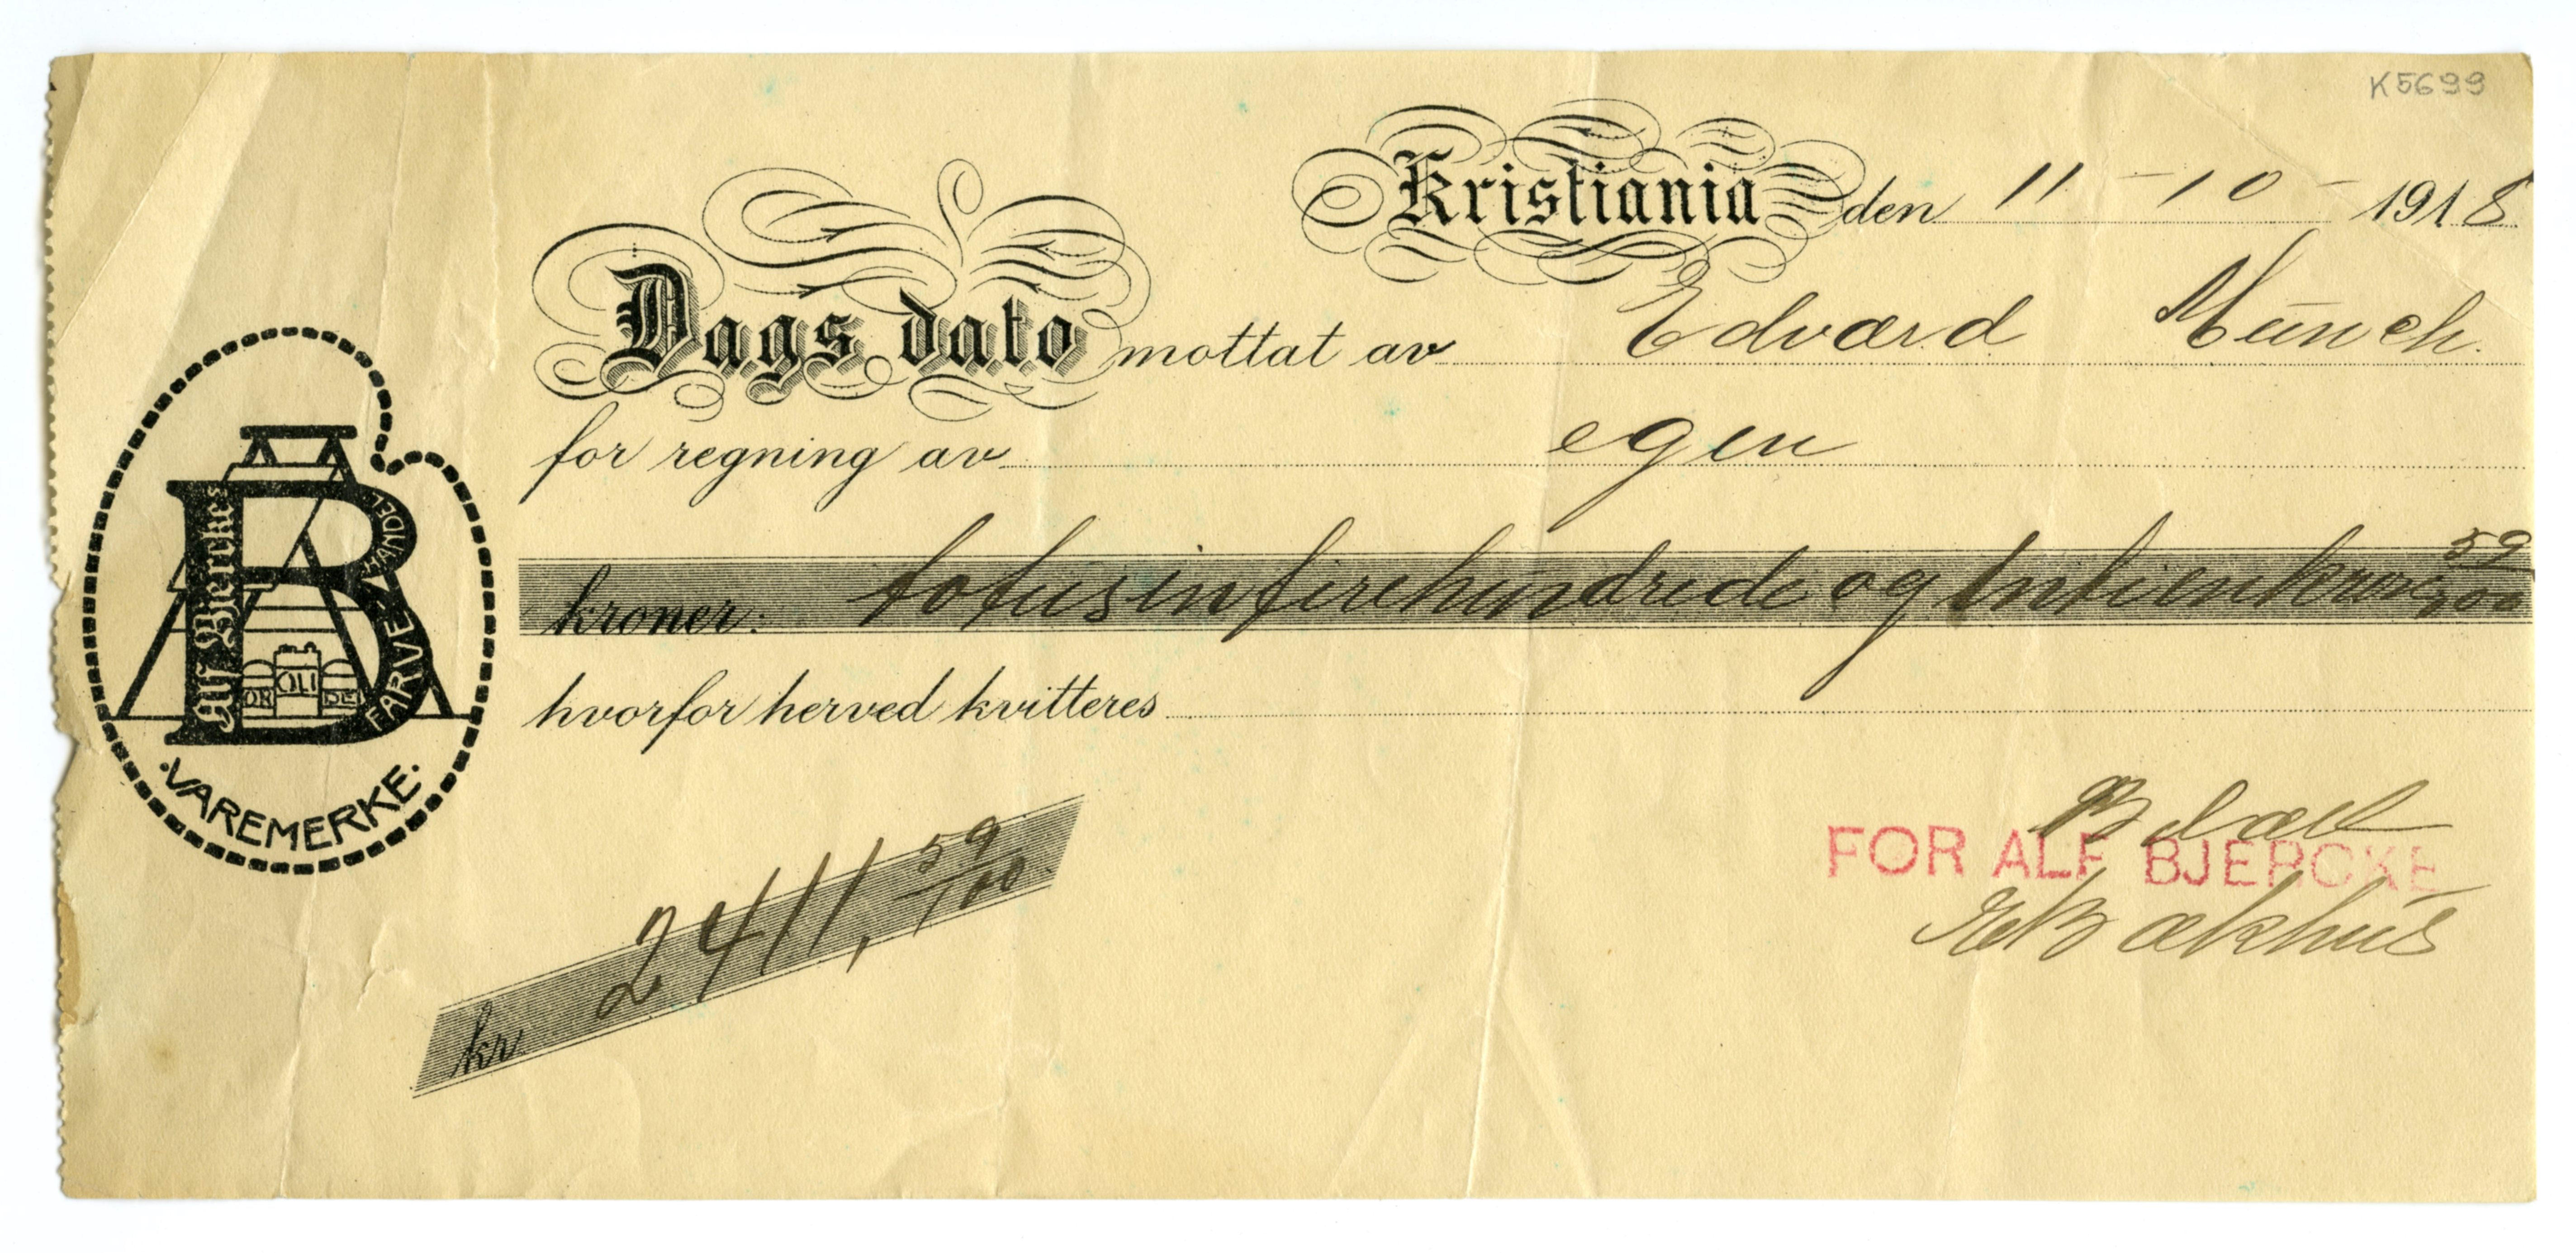 K5699
Kristiania den 11 - 10 - 1918
Dags dato mottat av Edvard Munch.
for regning av egen
kroner: totusinfirehundrede og 59/100
hvorfor herved kvitteres
Alf Bjerckes
FARVEHANDEL
OLI
·VAREMERKE·
kr 2411, 59/100
FOR ALF BJERCKE
Bakhus